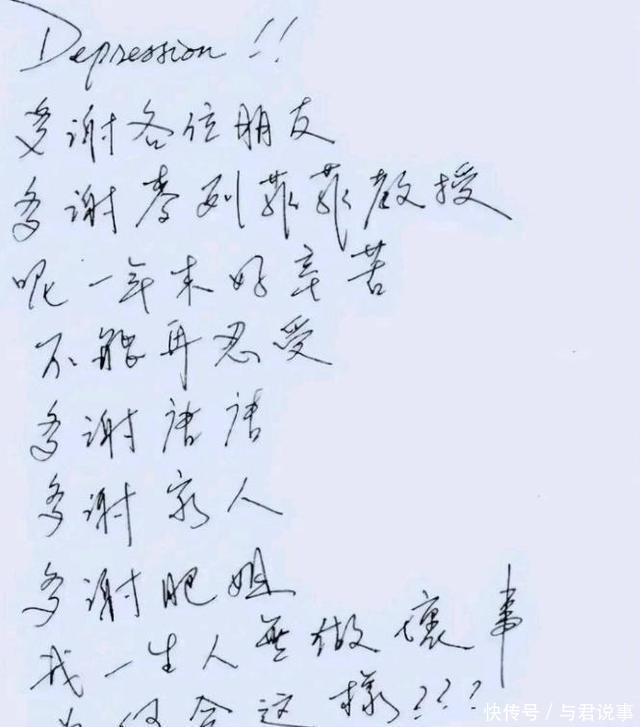 Depression!!
多谢各位朋友
多谢李列菲菲教授
呢一年来好辛苦
不能再忍受
多谢唐唐
多谢家人
多谢肥姐
我一生人無做壞事
為何會這樣???
快传号/与君说事